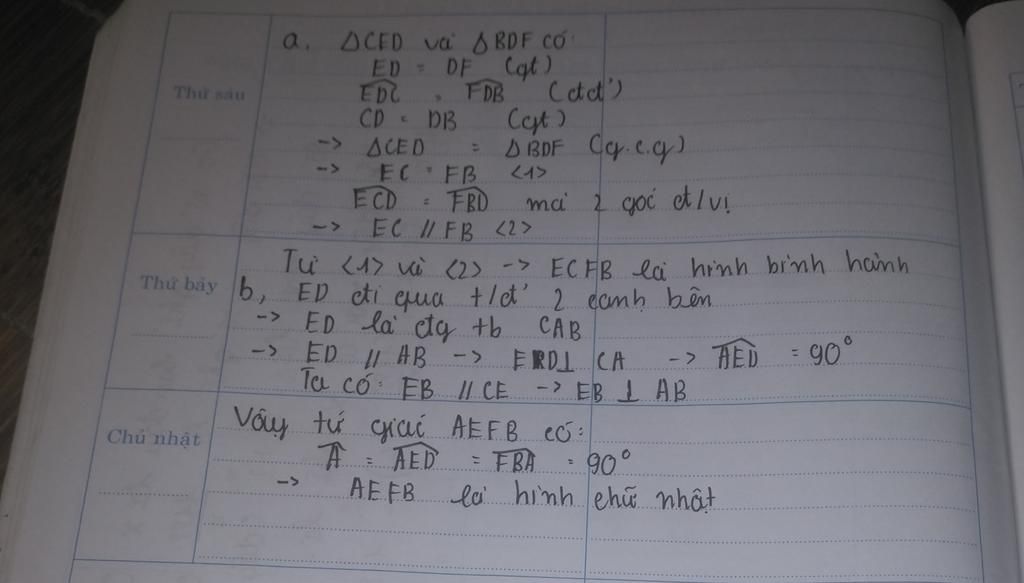 a. △CED và △BDF có:
ED = DF (gt)
Thứ sáu
EDC = FDB (đđ')
CD = DB (gt)
-> △CED = △BDF (g.c.g)
-> EC = FB <1>
ECD = FBD mà 2 góc đ/vị
-> EC // FB <2>
Từ <1> và <2> -> ECFB là hình bình hành
Thứ bảy
b, ED đi qua t/đ' 2 cạnh bên
-> ED là đtg tb CAB
-> ED // AB -> ED ⊥ CA -> AED = 90°
Ta có: EB // CE -> EB ⊥ AB
Vậy tứ giác AEFB có:
Chủ nhật
A = AED = FBA = 90°
-> AEFB là hình chữ nhật